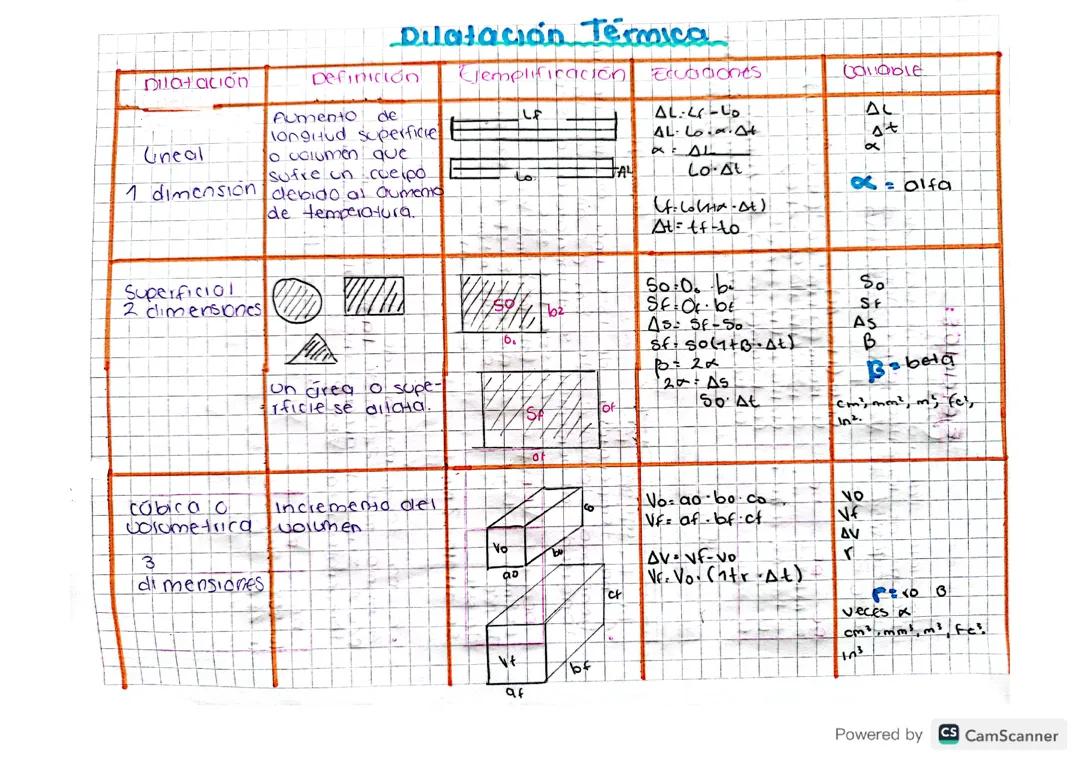 Dilatación Térmica
Dilatación
Definición
Ejemplificación
Ecuaciones
Variable
Lineal
1 dimensión
Aumento de
longitud superficie
o volumen que
sufre un cuerpo
debido al aumento
de temperatura.
Lf
Lo
ΔL
ΔL=Lf-Lo
ΔL=Lo·α·Δt
α = ΔL
Lo·Δt
Lf=Lo(1+α·Δt)
Δt=tf-to
ΔL
Δt
α
α = alfa
Superficial
2 dimensiones
Un área o supe-
rficie se dilata.
So
b2
Sf
af
Sf=af·bf
Δs=Sf-So
Sf=So(1+β·Δt)
β=2α
2α=Δs
So·Δt
So
Sf
ΔS
β
β=beta
In².
Cúbica o
volumetrica
3
dimensiones
Incremento del
volumen
Vo
ao
bo
Vf
af
bf
cf
Vo=ao·bo·co
Vf=af·bf·cf
ΔV=Vf-Vo
Vf=Vo·(1+r·Δt)
Vo
Vf
ΔV
r
veces α
cm³, mm³, m³,
In³
Powered by CS CamScanner